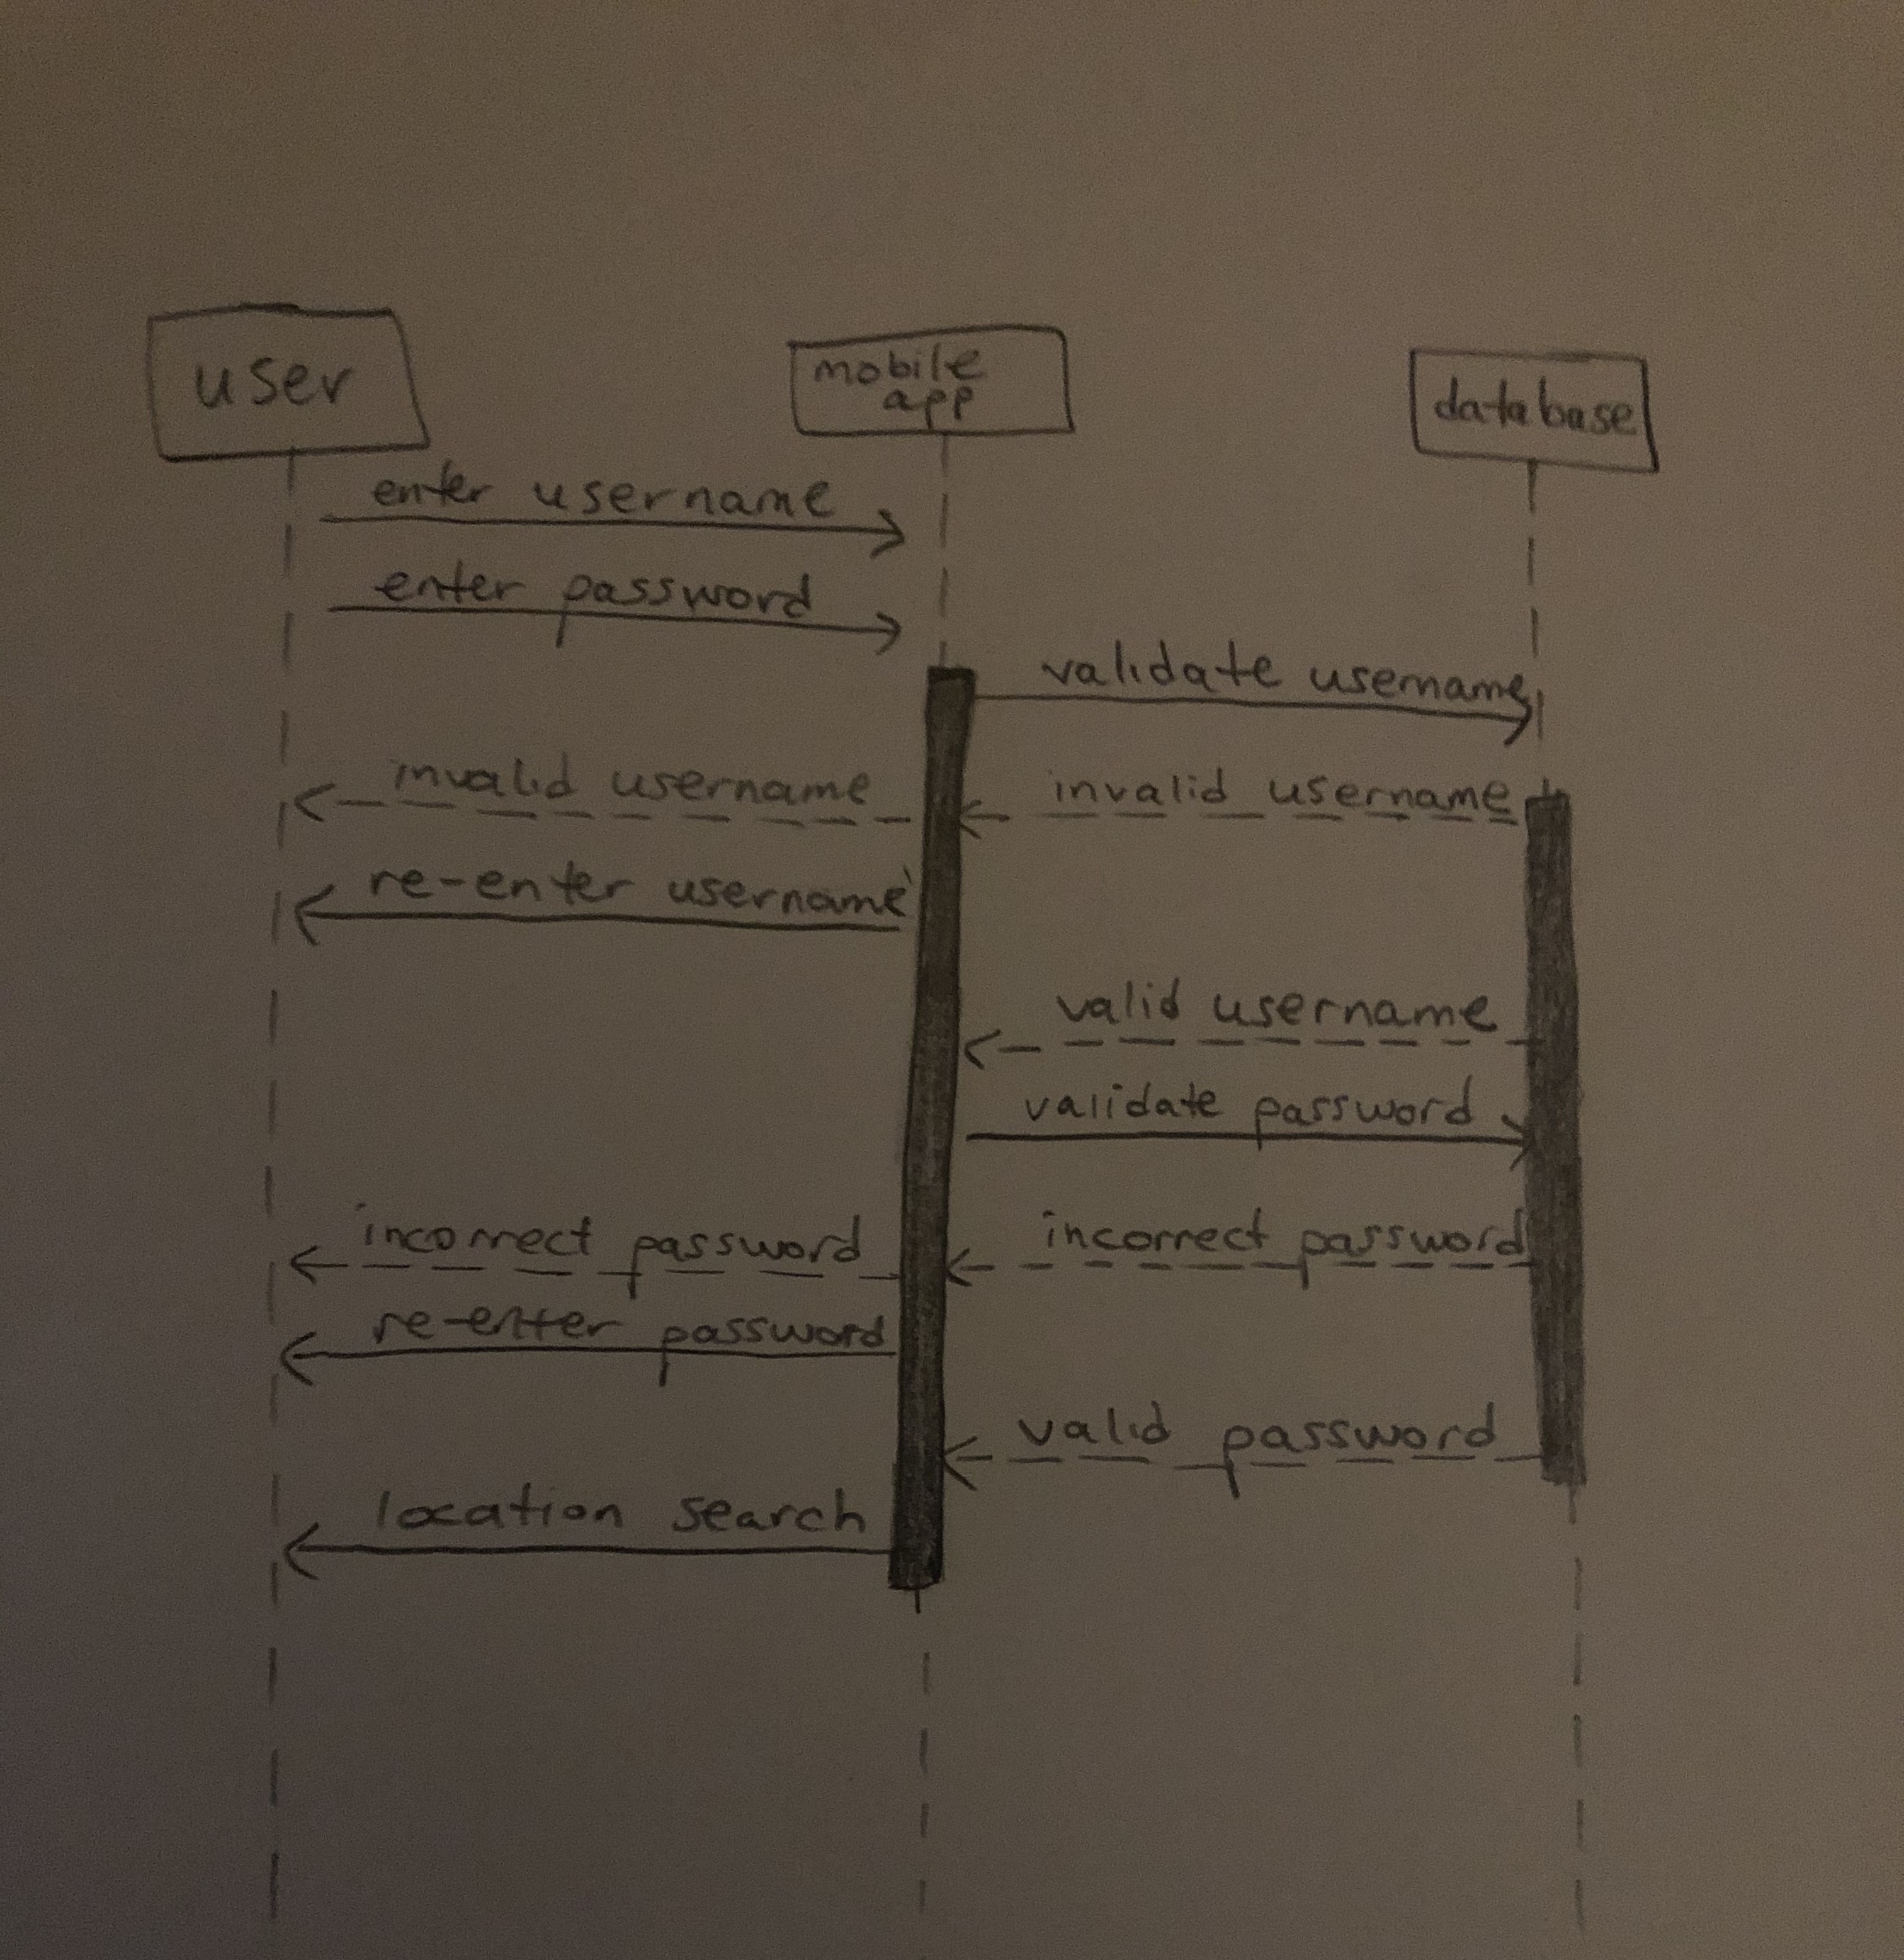 user
mobile
app
database
enter username
enter password
validate username
invalid username
invalid username
re-enter username
valid username
validate password
incorrect password
incorrect password
re-enter password
valid password
location search